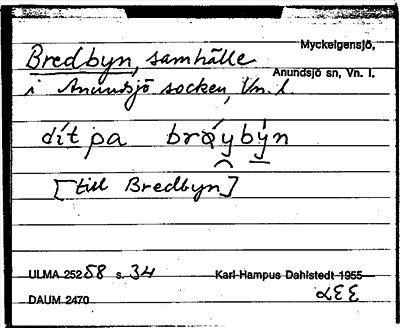 Myckelgensjö,
Bredbyn, samhälle
Anundsjö sn, Vn. l.
i Anundsjö socken, Vn. l.
dít pa brǻybýn
[till Bredbyn]
ULMA 25258 s. 34 Karl-Hampus Dahlstedt 1955
DAUM 2470